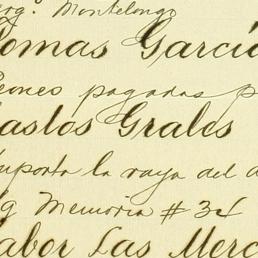 Jorgº. Montelongo
Tomas García
Peones pagadas p
Gastos Grales
Importa la raya del d
Sg Memoria # 34
Labor Las Merc